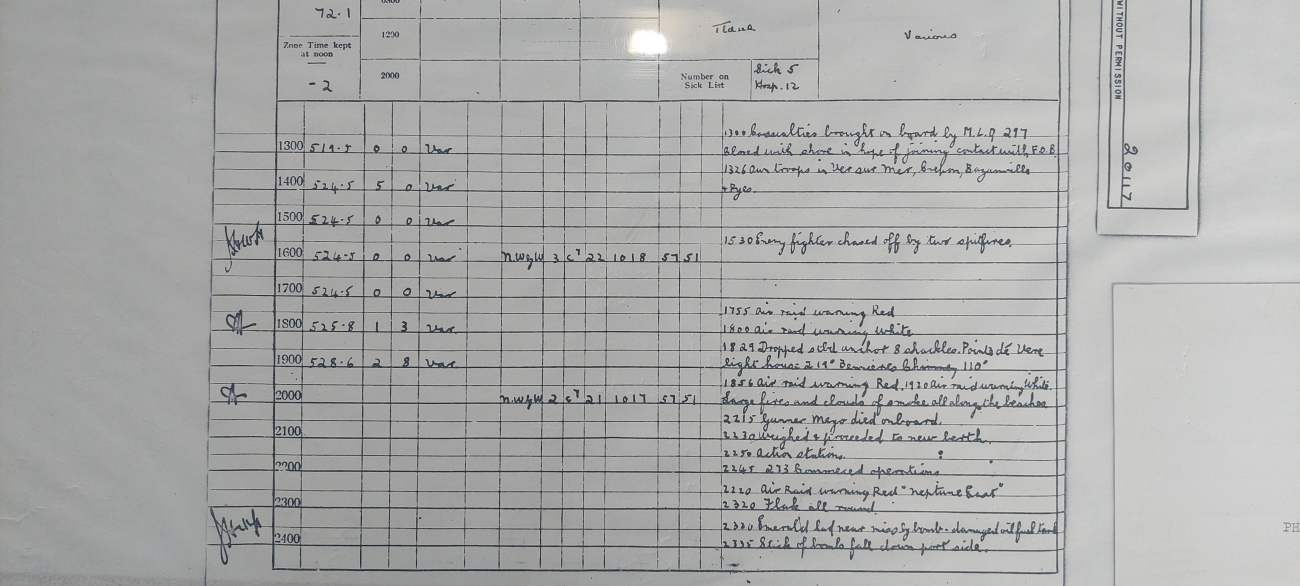 72.1
1200
Various
Zone Time kept
at noon
-2
2000
Number on
Sick List
Sick 5
Hosp. 12
WITHOUT PERMISSION
20117
1300 Casualties brought on board by M.L.Q 297
1300 519.5 0 0 Var
Closed with shore in hope of joining contact with F.O.B.
1326 Our troops in Ver sur Mer, Crepon, Bazanville
1400 524.5 5 0 Var
+ Ryes.
1500 524.5 0 0 Var
1530 Enemy fighter chased off by two spitfires.
1600 524.5 0 0 Var N.W.b.W 3 c 22 1018 57 51
1700 524.5 0 0 Var
1755 Air raid warning Red
1800 525.8 1 3 Var.
1800 Air raid warning White
1829 Dropped stbd anchor 8 shackles. Points de Vere
1900 528.6 2 8 Var.
light house 219° Bernieres Chimney 110°
1856 Air raid warning Red, 1920 Air raid warning White.
2000 N.W.b.W 2 c 21 1017 57 51
Large fires and clouds of smoke all along the beaches
2215 Gunner Mayo died onboard.
2100
2230 Weighed & proceeded to new berth.
2250 Action stations.
2200
2245 273 Commeced operations
2220 Air Raid warning Red "Neptune East"
2300
2320 Flak all round.
2330 Emerald had near miss by bomb - damaged oil fuel tank
2400
2335 Stick of bombs fell down port side.
PH